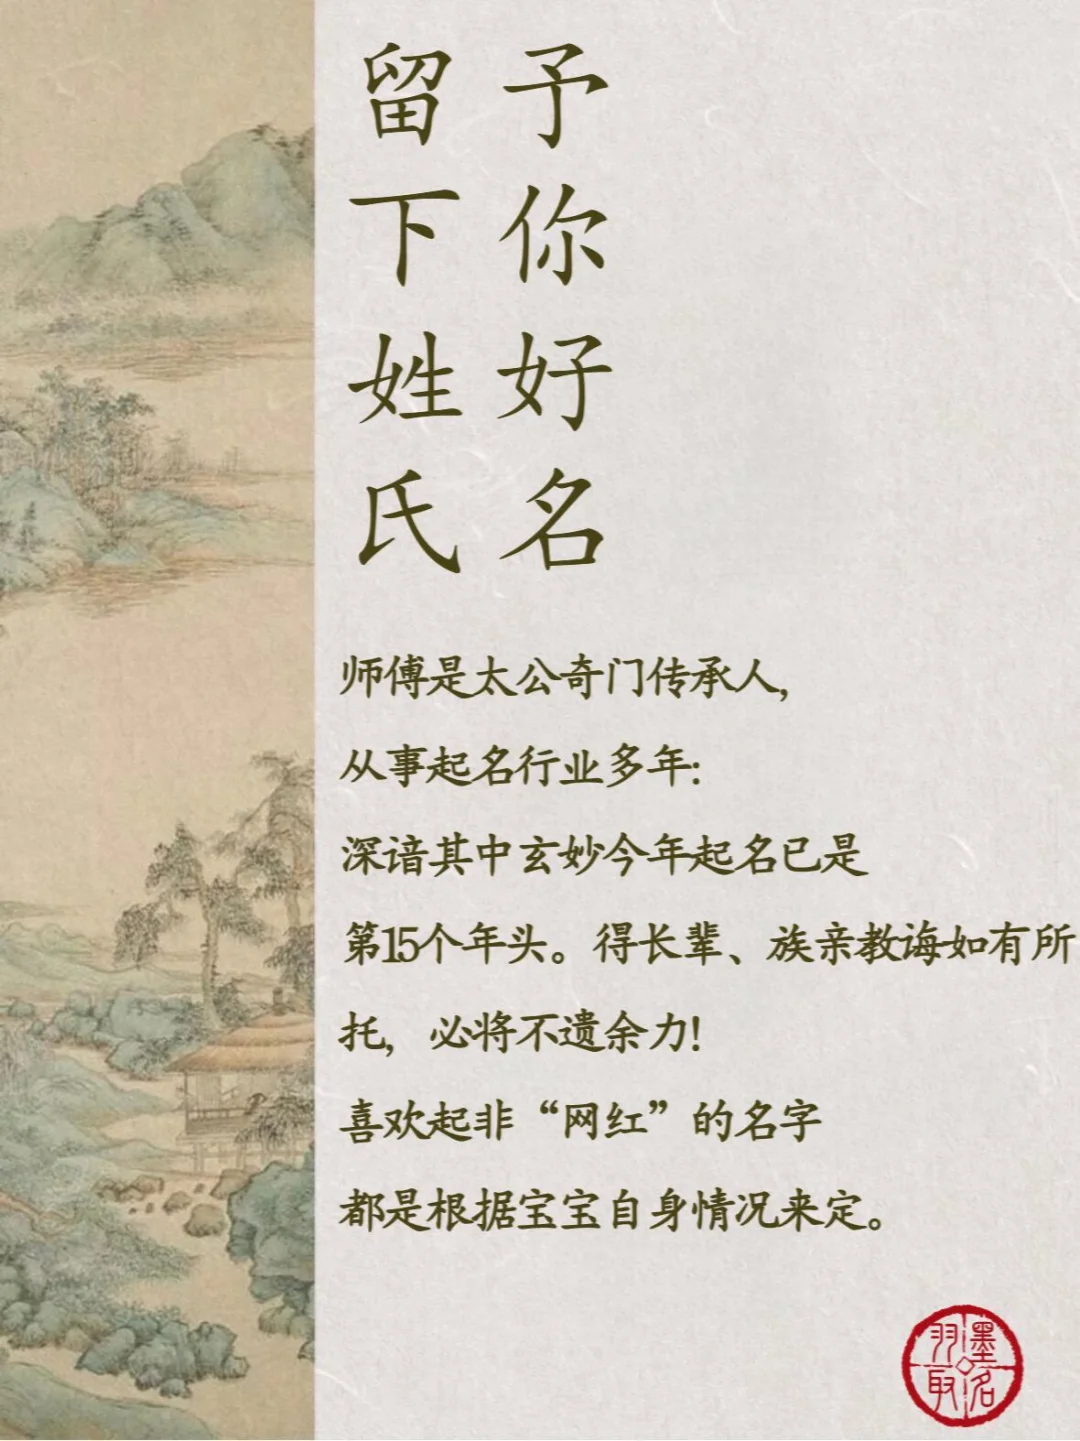 留下姓氏
予你好名
师傅是太公奇门传承人，
从事起名行业多年：
深谙其中玄妙今年起名已是
第15个年头。得长辈、族亲教诲如有所
托，必将不遗余力！
喜欢起非“网红”的名字
都是根据宝宝自身情况来定。
羽墨取名